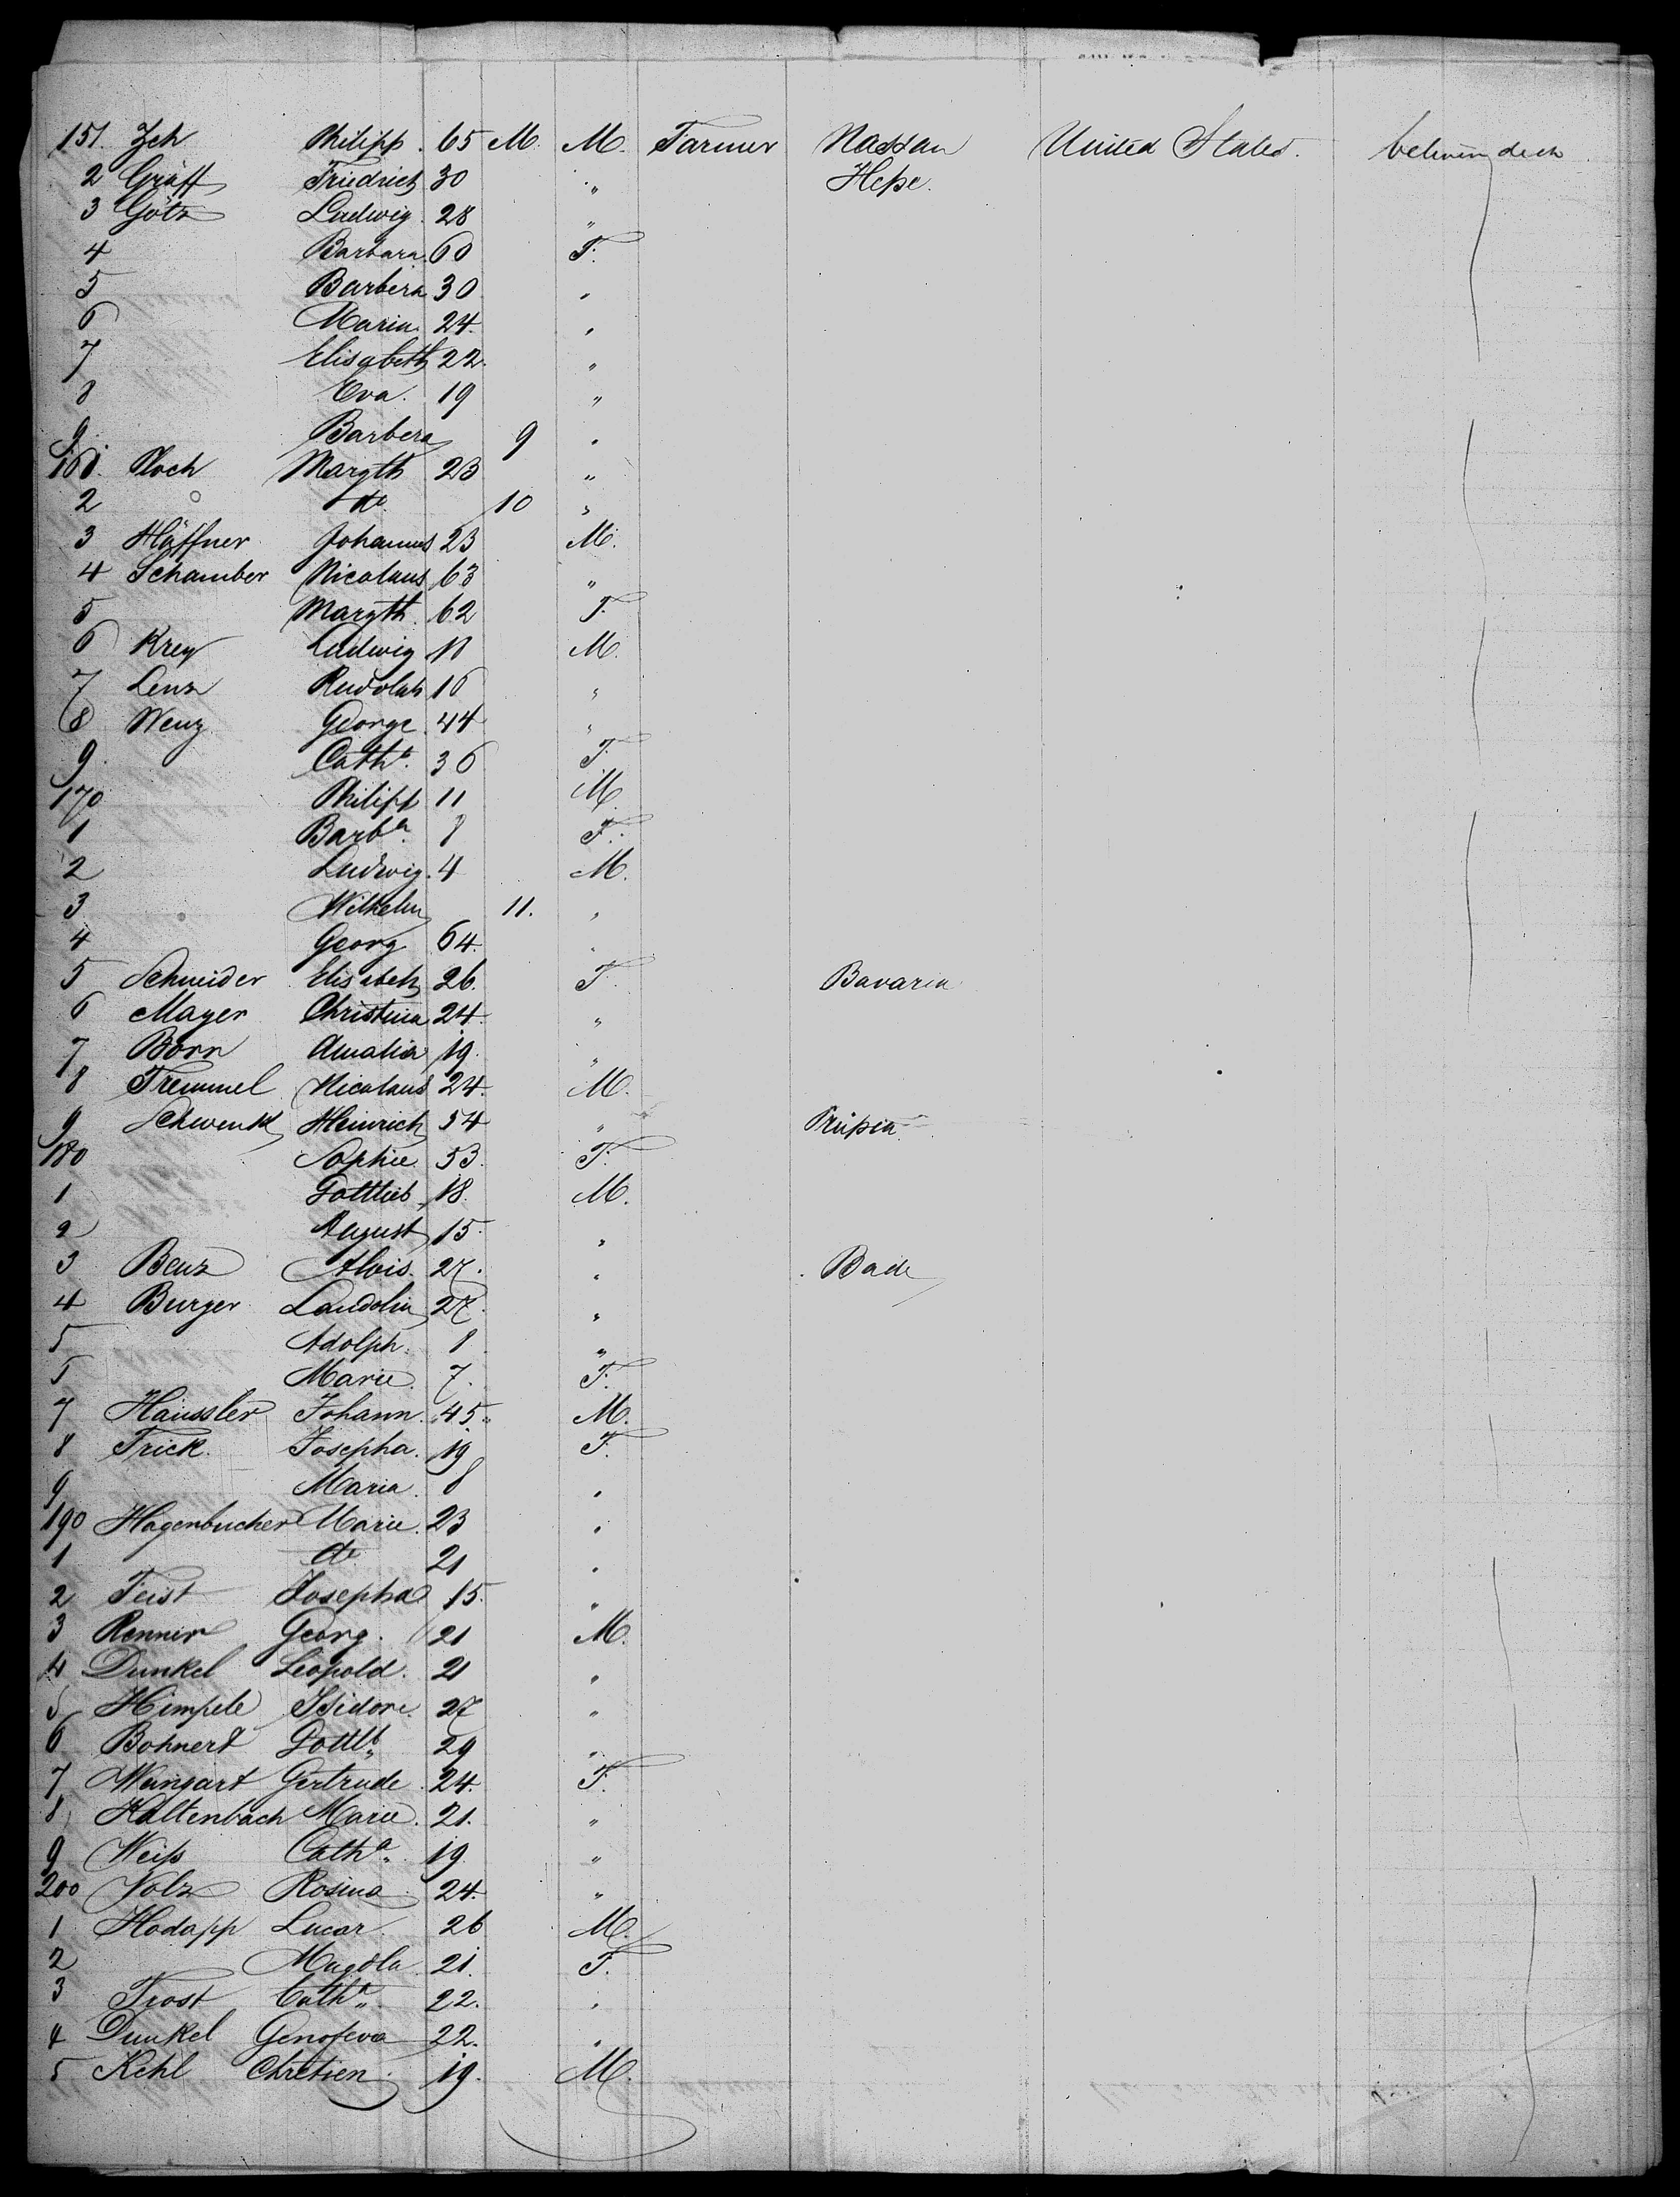 151. Zeh Philipp. 65 M. M. Farmer Nassau United States. between deck
2 Gräff Friedrich 30 " Heße.
3 Götz Ludwig. 28 "
4 Barbara. 60 F.
5 Barbera 30 "
6 Maria. 24. "
7 Elisabeth 22. "
8 Eva. 19 "
9 Barbera 9 "
161. Ploch Margth 23 "
2 do 10 "
3 Häffner Johannes 23 M.
4 Schamber Nicolaus 63 "
5 Margth. 62 F.
6 Krey Ludwig 18 M.
7 Lenz Rudolph 16 "
8 Wenz George. 44 "
9. Catha. 36 F.
170 Philipp 11 M.
1 Barba. 8 F.
2 Ludwig. 4 M.
3 Wilhelm 11. "
4 Georg 64. "
5 Schneider Elisabeth 26. F. Bavaria
6 Mayer Christina 24. "
7 Born Amalia 19. "
8 Tremmel Nicolaus 24. M.
9 Schwenk Heinrich 54 " Prußia
180 Sophie 53. F.
1 Gottlieb 18. M.
2 August 15. "
3 Benz Alois. 27. " Bade
4 Burger Landolin 27. "
5 Adolph. 8 "
5 Marie. 7. F.
7 Haussler Johann. 45. M.
8 Frick. Josepha. 19 F.
9 Maria. 8 "
190 Hagenbucher Marie. 23 "
1 do 21 "
2 Feist Josepha 15. "
3 Renner Georg. 21 M.
4 Dunkel Leopold. 21 "
5 Himpele Isidore. 27 "
6 Bohnert Gottlb. 29 "
7 Weingart Gertrude. 24. F.
8 Kaltenbach Marie. 21. "
9 Weiß Catha. 19. "
200 Volz Rosina. 24. "
1 Hodapp Lucar. 26 M.
2 Magdla. 21. F.
3 Trost Catha. 22. "
4 Dunkel Genofeva 22. "
5 Kehl Chretien. 19. M.